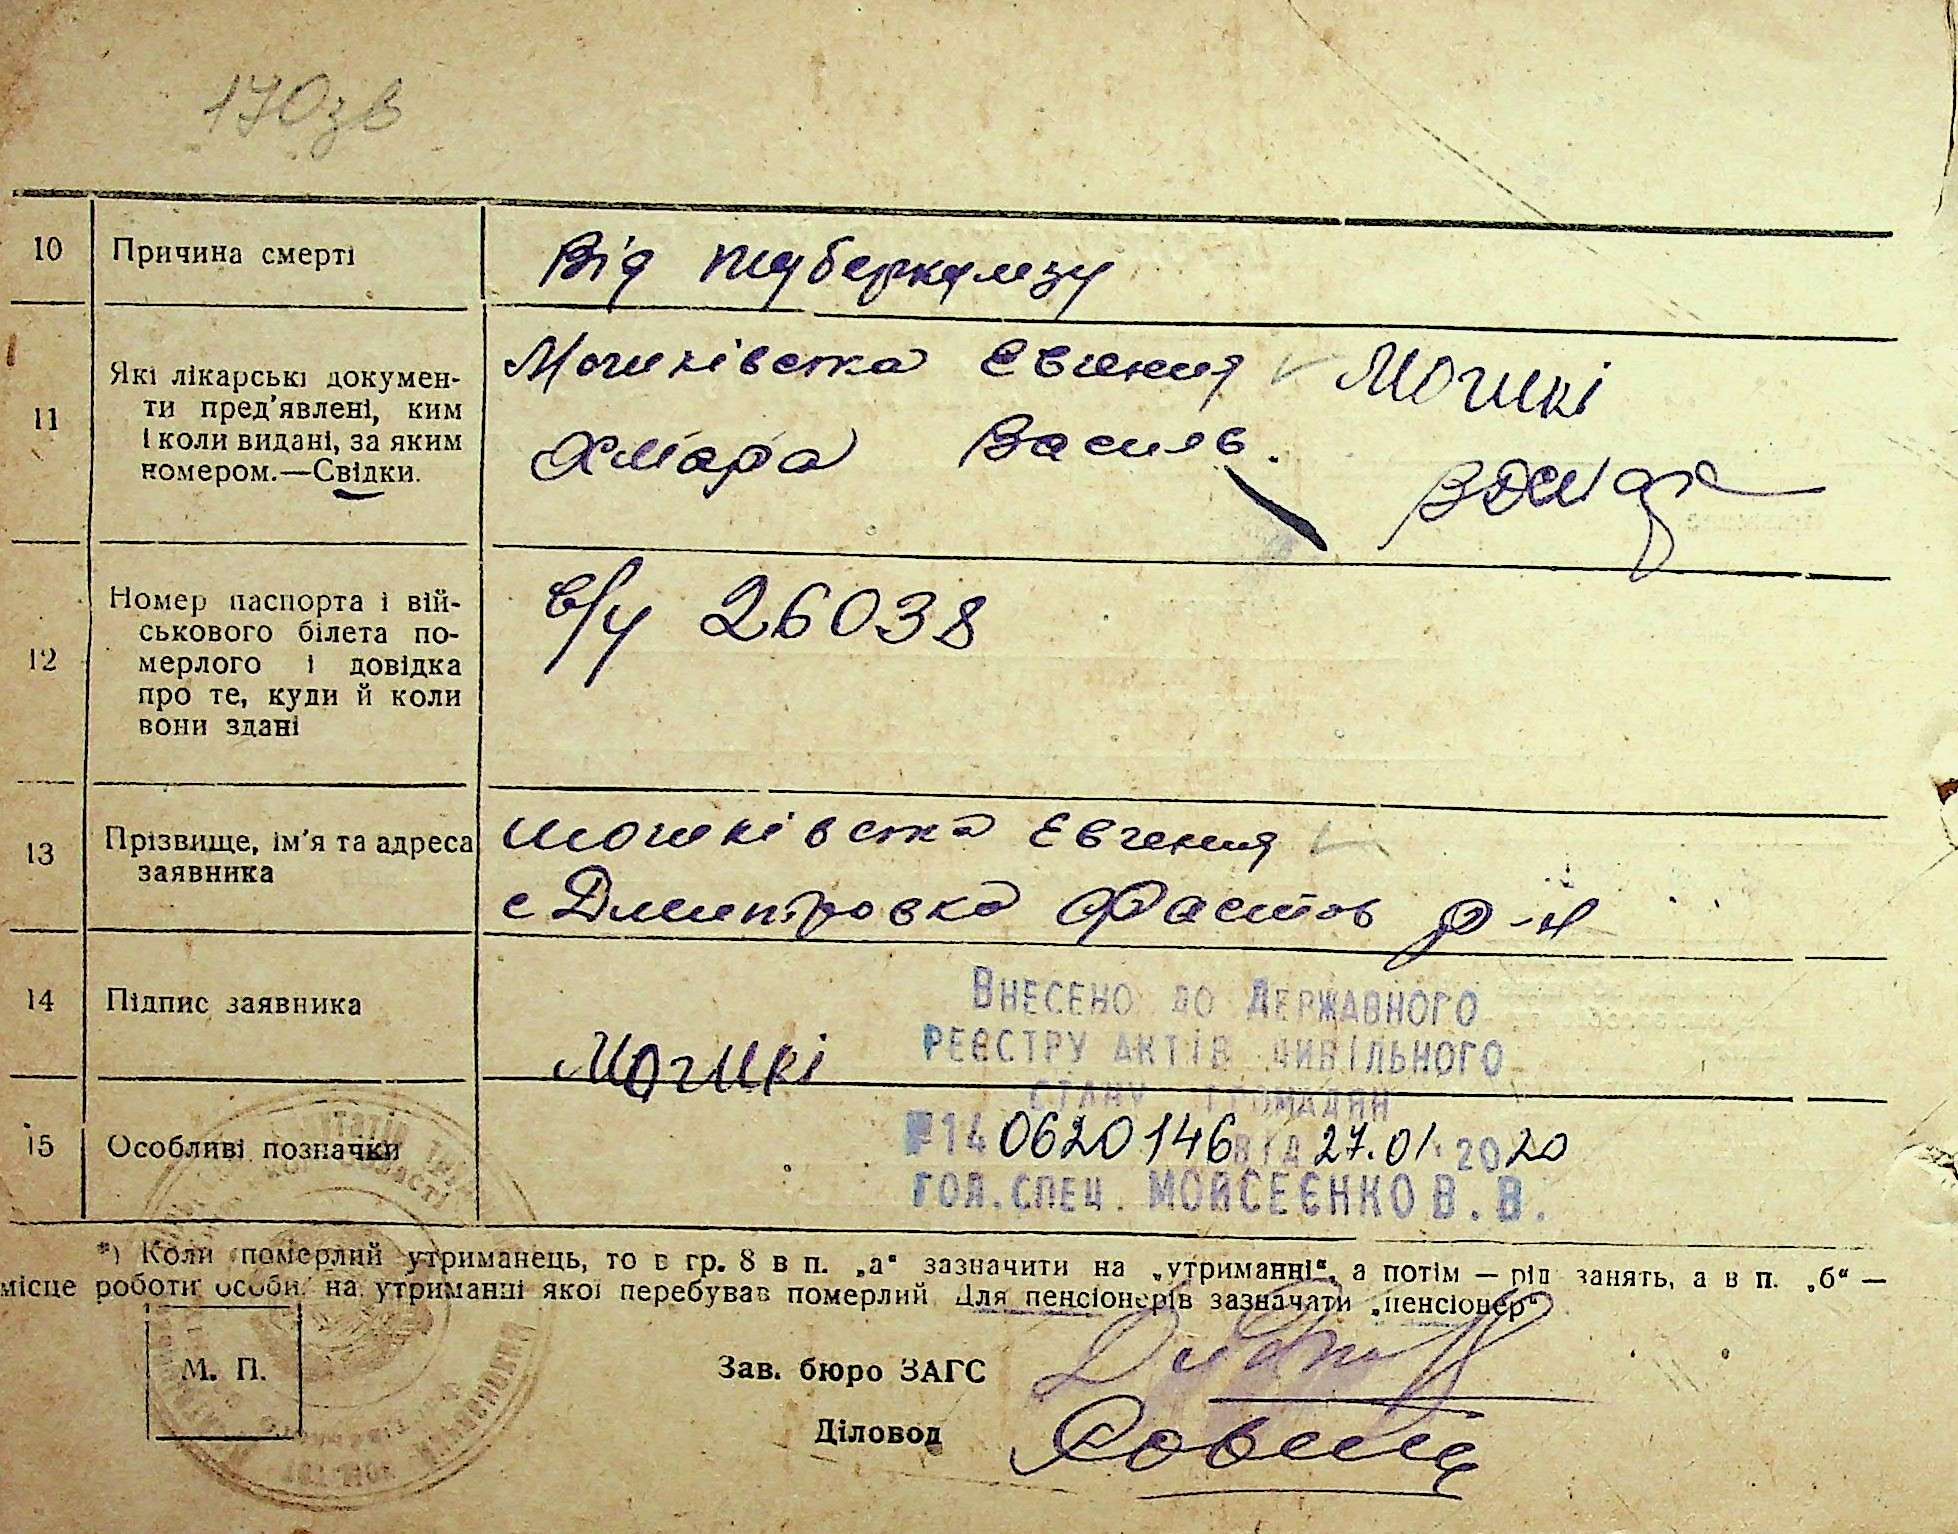 170зв
10 Причина смерті Від туберкульозу
11 Які лікарські докумен-
ти пред'явлені, ким
і коли видані, за яким
номером.—Свідки.
Могиківська Евгения Могикі
Хмара Василь.
12 Номер паспорта і вій-
ськового білета по-
мерлого і довідка
про те, куди й коли
вони здані
в/ч 26038
13 Прізвище, ім'я та адреса
заявника
Могиківська Евгения
с Дмитровка Фастов р-н
14 Підпис заявника
Могикі
Внесено до Державного
реєстру актів цивільного
стану громадян
№14 0620146 від 27.01.2020
гол.спец. Мойсеєнко В.В.
15 Особливі позначки
*) Коли померлий утриманець, то в гр. 8 в п. „а“ зазначити на „утриманні“, а потім — рід занять, а в п. „б“ —
місце роботи особи, на утриманні якої перебував померлий. Для пенсіонерів зазначати „пенсіонер“.
М. П.
Зав. бюро ЗАГС
Діловод